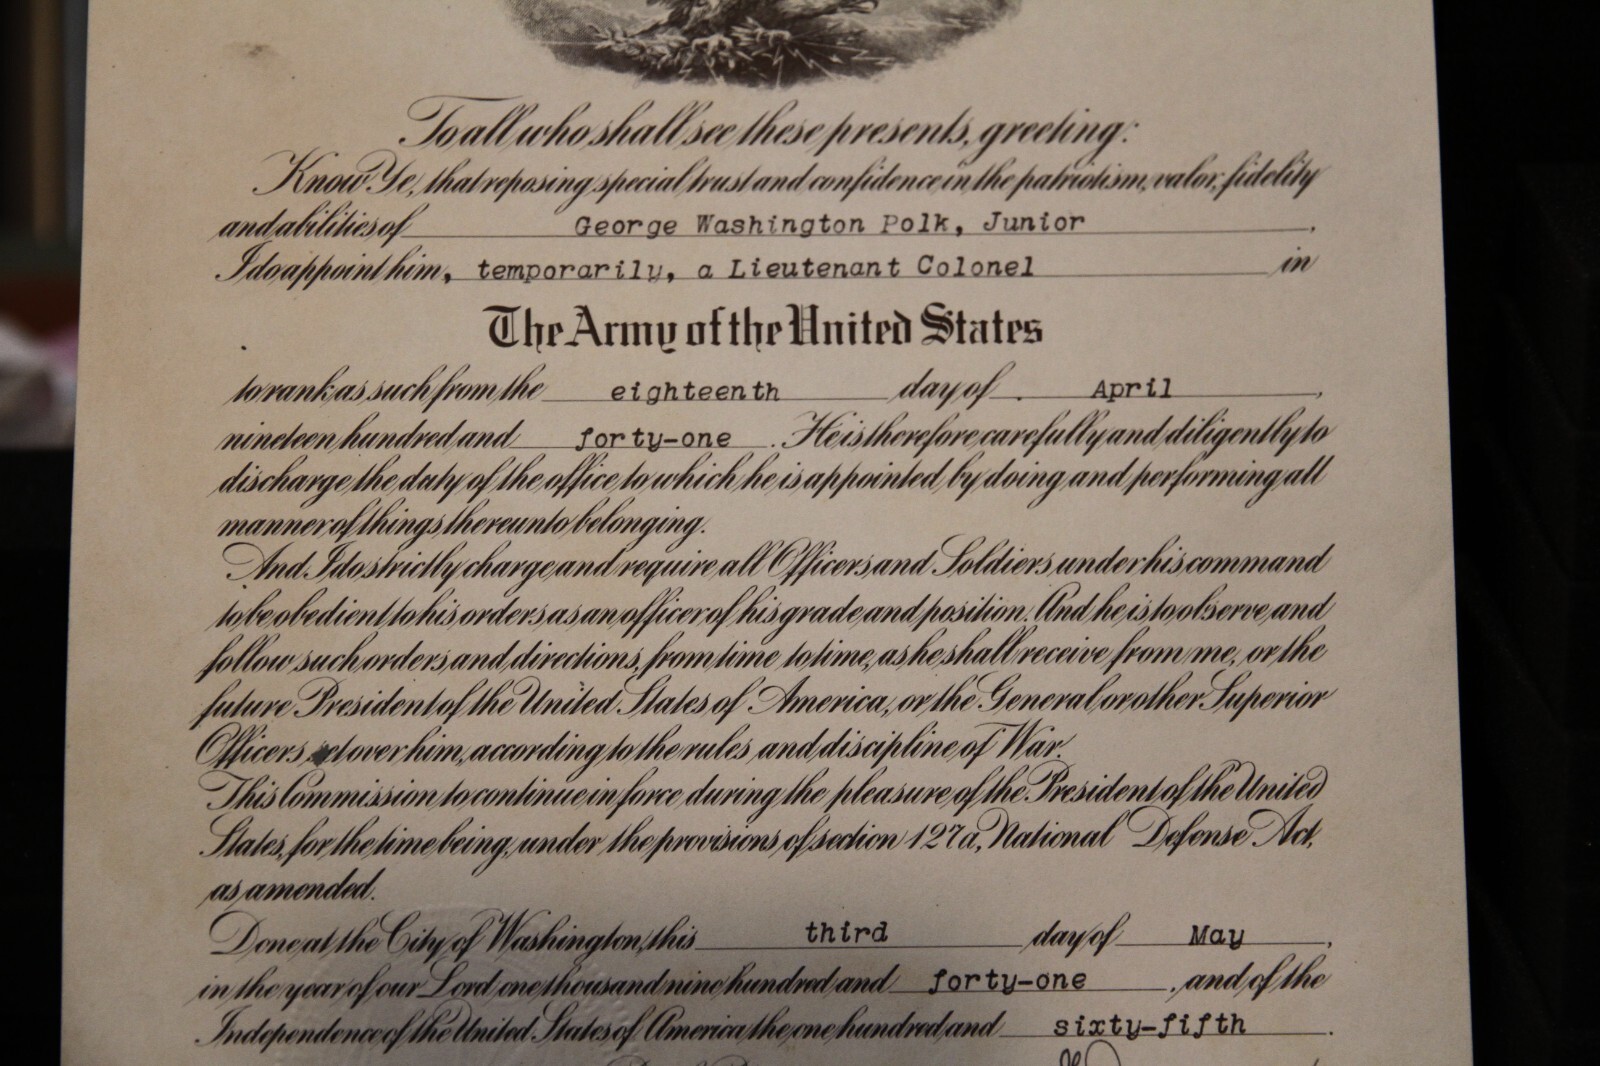 To all who shall see these presents, greeting:
Know Ye, that reposing special trust and confidence in the patriotism, valor, fidelity
and abilities of George Washington Polk, Junior,
I do appoint him, temporarily, a Lieutenant Colonel in
The Army of the United States
to rank as such from the eighteenth day of April,
nineteen hundred and forty-one. He is therefore carefully and diligently to
discharge the duty of the office to which he is appointed by doing and performing all
manner of things thereunto belonging.
And I do strictly charge and require all Officers and Soldiers under his command
to be obedient to his orders as an officer of his grade and position. And he is to observe and
follow such orders and directions, from time to time, as he shall receive from me, or the
future President of the United States of America, or the General or other Superior
Officers set over him, according to the rules and discipline of War.
This Commission to continue in force during the pleasure of the President of the United
States, for the time being, under the provisions of section 127a, National Defense Act,
as amended.
Done at the City of Washington, this third day of May,
in the year of our Lord one thousand nine hundred and forty-one, and of the
Independence of the United States of America the one hundred and sixty-fifth.